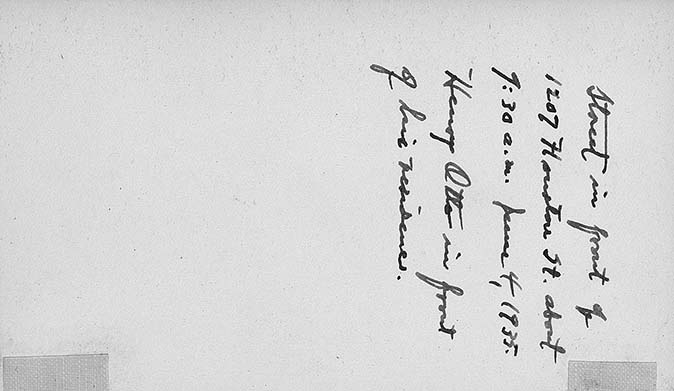 Street in front of
1207 Houston St. about
9:30 a.m. June 4, 1935.
Henry Otto in front
of his residence.